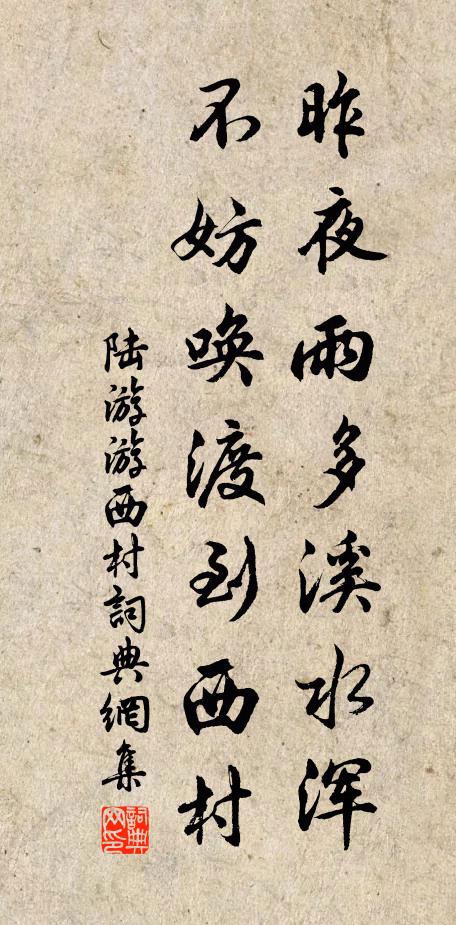 昨夜雨多溪水浑
不妨唤渡到西村
陆游游西村詞典網集
詞典網印